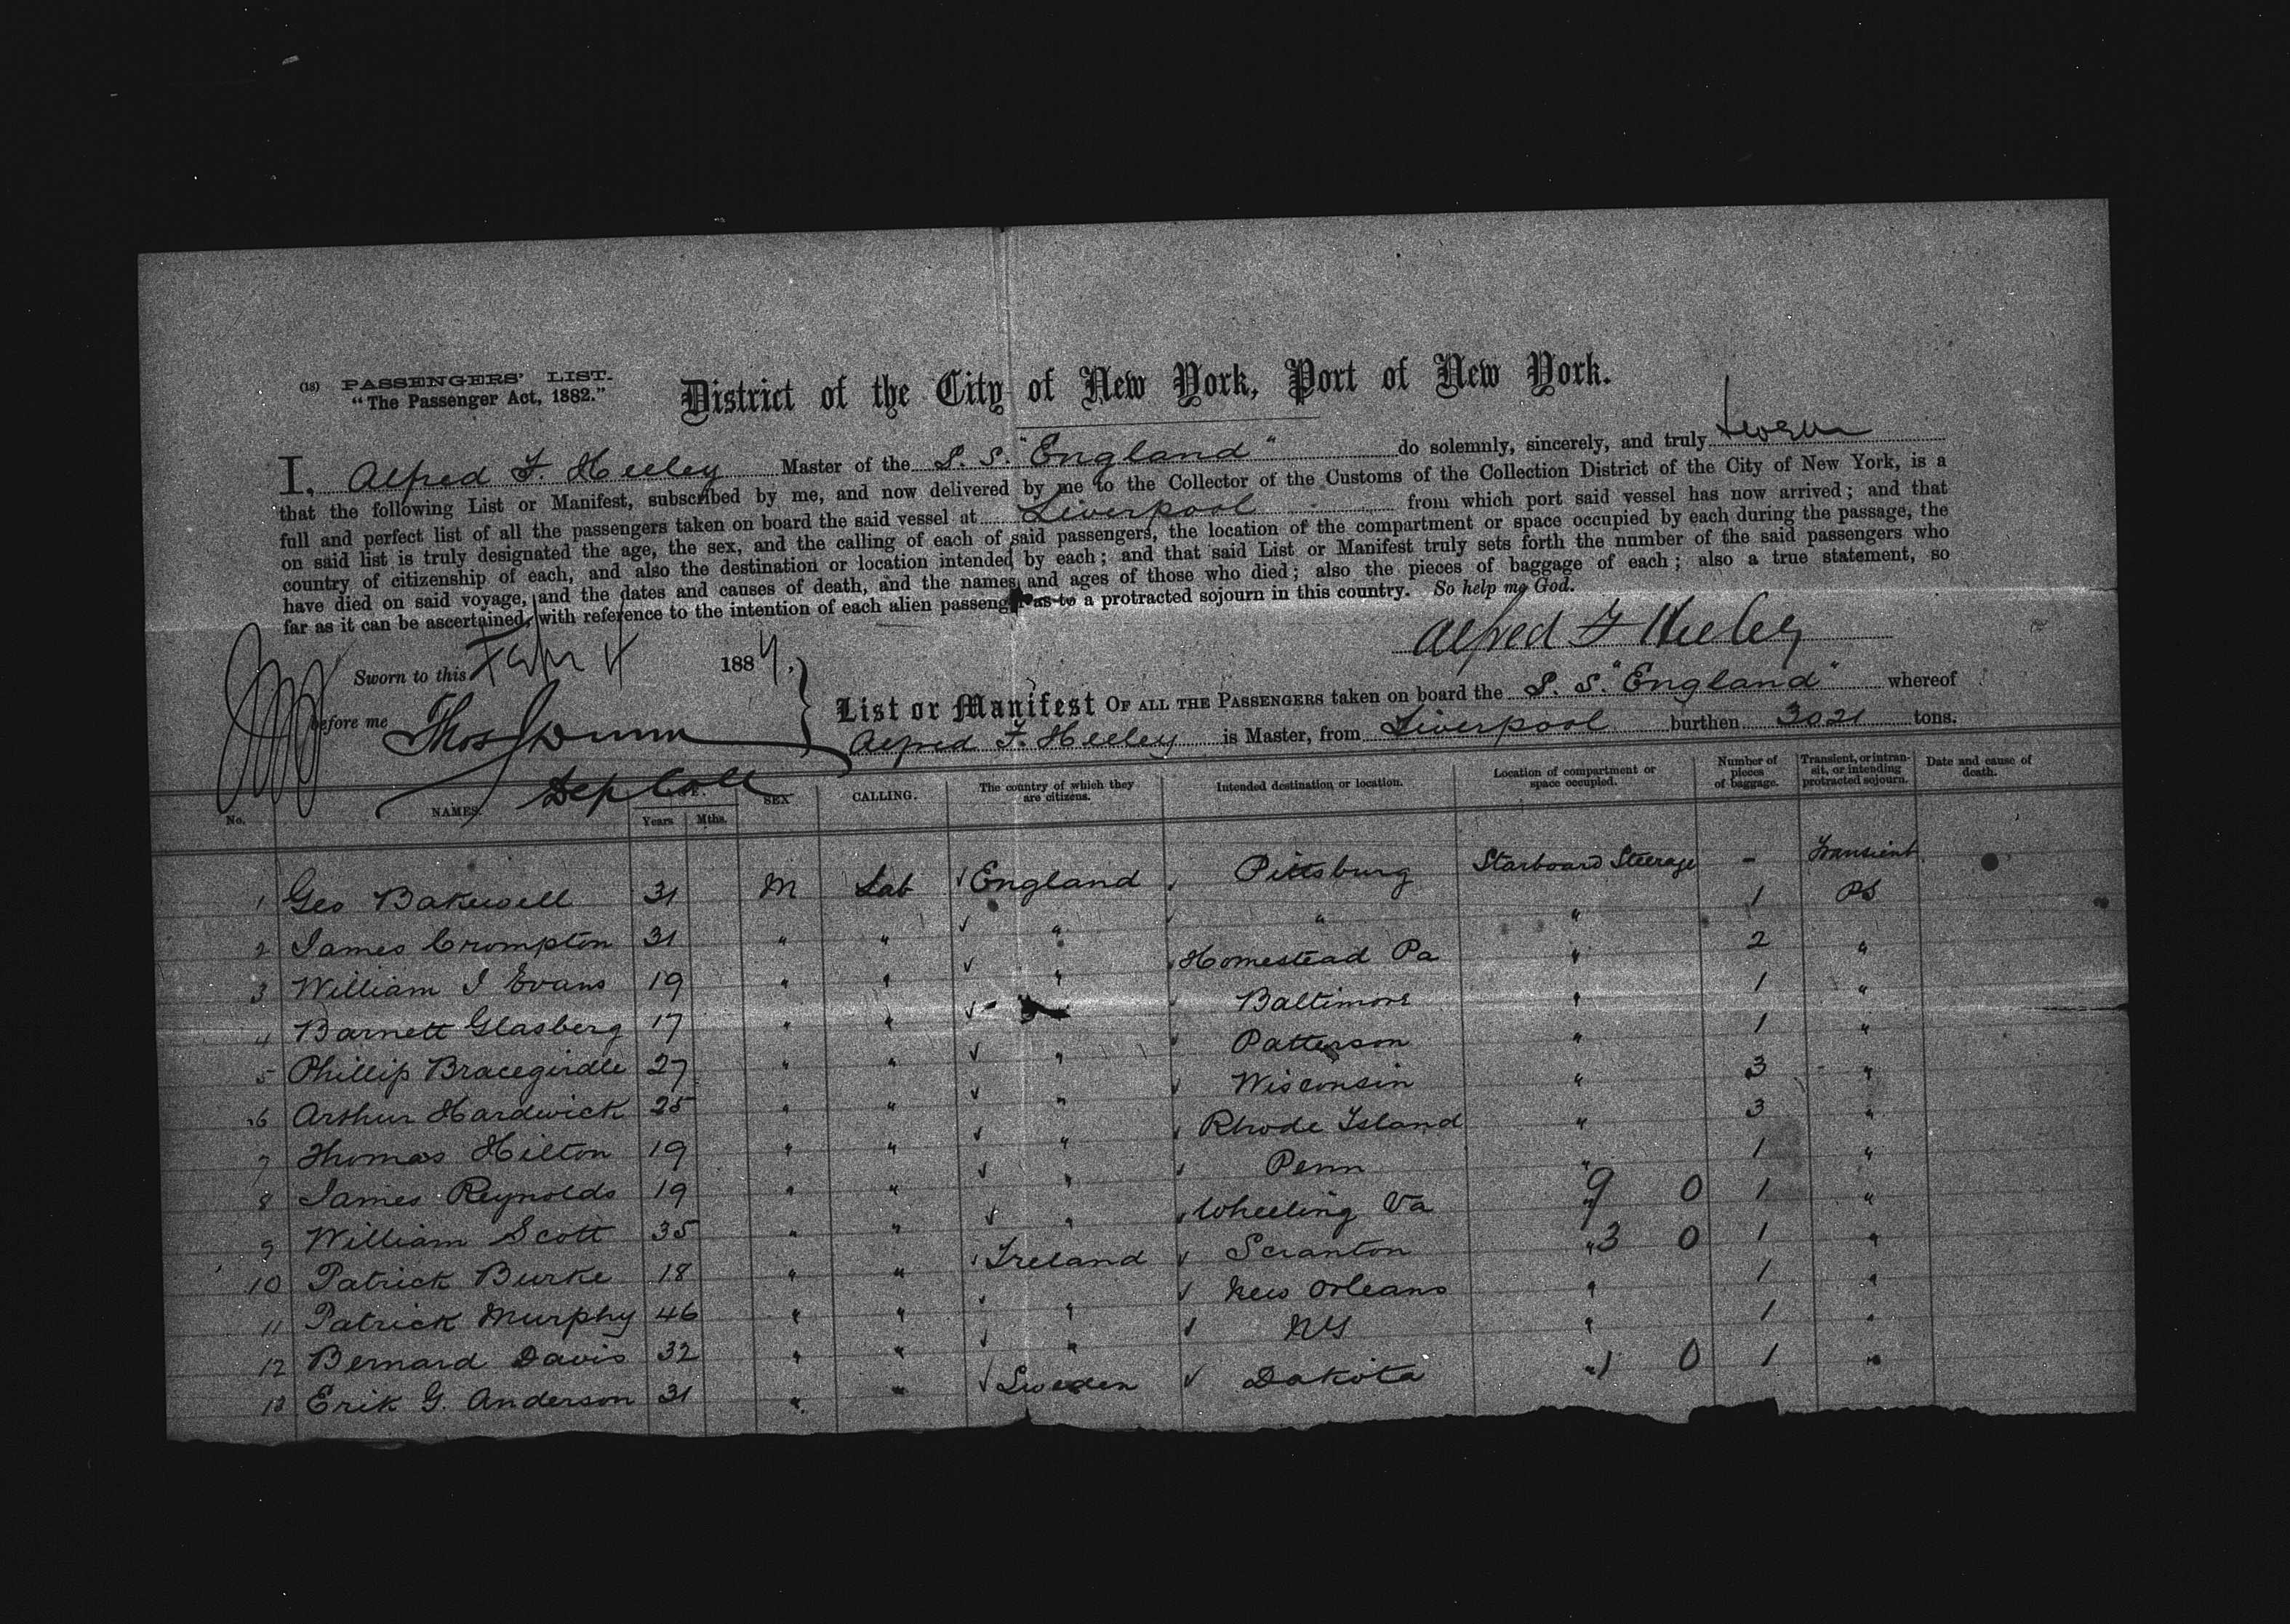 (18) PASSENGERS' LIST.
"The Passenger Act, 1882."
District of the City of New York, Port of New York.
I, Alfred F. Heeley Master of the S. S. "England" do solemnly, sincerely, and truly swear
that the following List or Manifest, subscribed by me, and now delivered by me to the Collector of the Customs of the Collection District of the City of New York, is a
full and perfect list of all the passengers taken on board the said vessel at Liverpool from which port said vessel has now arrived; and that
on said list is truly designated the age, the sex, and the calling of each of said passengers, the location of the compartment or space occupied by each during the passage, the
country of citizenship of each, and also the destination or location intended by each; and that said List or Manifest truly sets forth the number of the said passengers who
have died on said voyage, and the dates and causes of death, and the names and ages of those who died; also the pieces of baggage of each; also a true statement, so
far as it can be ascertained, with reference to the intention of each alien passenger as to a protracted sojourn in this country. So help me God.
Alfred F Heeley
Sworn to this Febr 4 1884.
before me Thos J Dunn
Dep Coll
List or Manifest OF ALL THE PASSENGERS taken on board the S. S. "England" whereof
Alfred F. Heeley is Master, from Liverpool burthen 3021 tons.
No. NAMES. Years Mths. SEX CALLING. The country of which they are citizens. Intended destination or location. Location of compartment or space occupied. Number of pieces of baggage. Transient, or intransit, or intending protracted sojourn. Date and cause of death.
1 Geo Bakewell 31 M Lab England Pittsburg Starboard Steerage - Transient
2 James Crompton 31 " " " " " 1 PS
3 William J Evans 19 " " " Homestead Pa " 2 "
4 Barnett Glasberg 17 " " Baltimore " 1 "
5 Phillip Bracegirdle 27 " " " Patterson " 1 "
6 Arthur Hardwick 25 " " " Wisconsin " 3 "
7 Thomas Hilton 19 " " " Rhode Island " 3 "
8 James Reynolds 19 " " " Penn " 1 "
9 William Scott 35 " " " Wheeling Va " 9 0 1 "
10 Patrick Burke 18 " " Ireland Scranton " 3 0 1 "
11 Patrick Murphy 46 " " " New Orleans " 1 "
12 Bernard Davis 32 " " " NY " 1 "
13 Erik G. Anderson 31 " " Sweden Dakota " 1 0 1 "